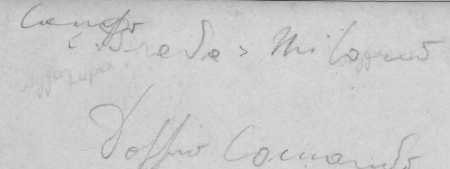 Campo
Breda > Milano
Doppio Comando